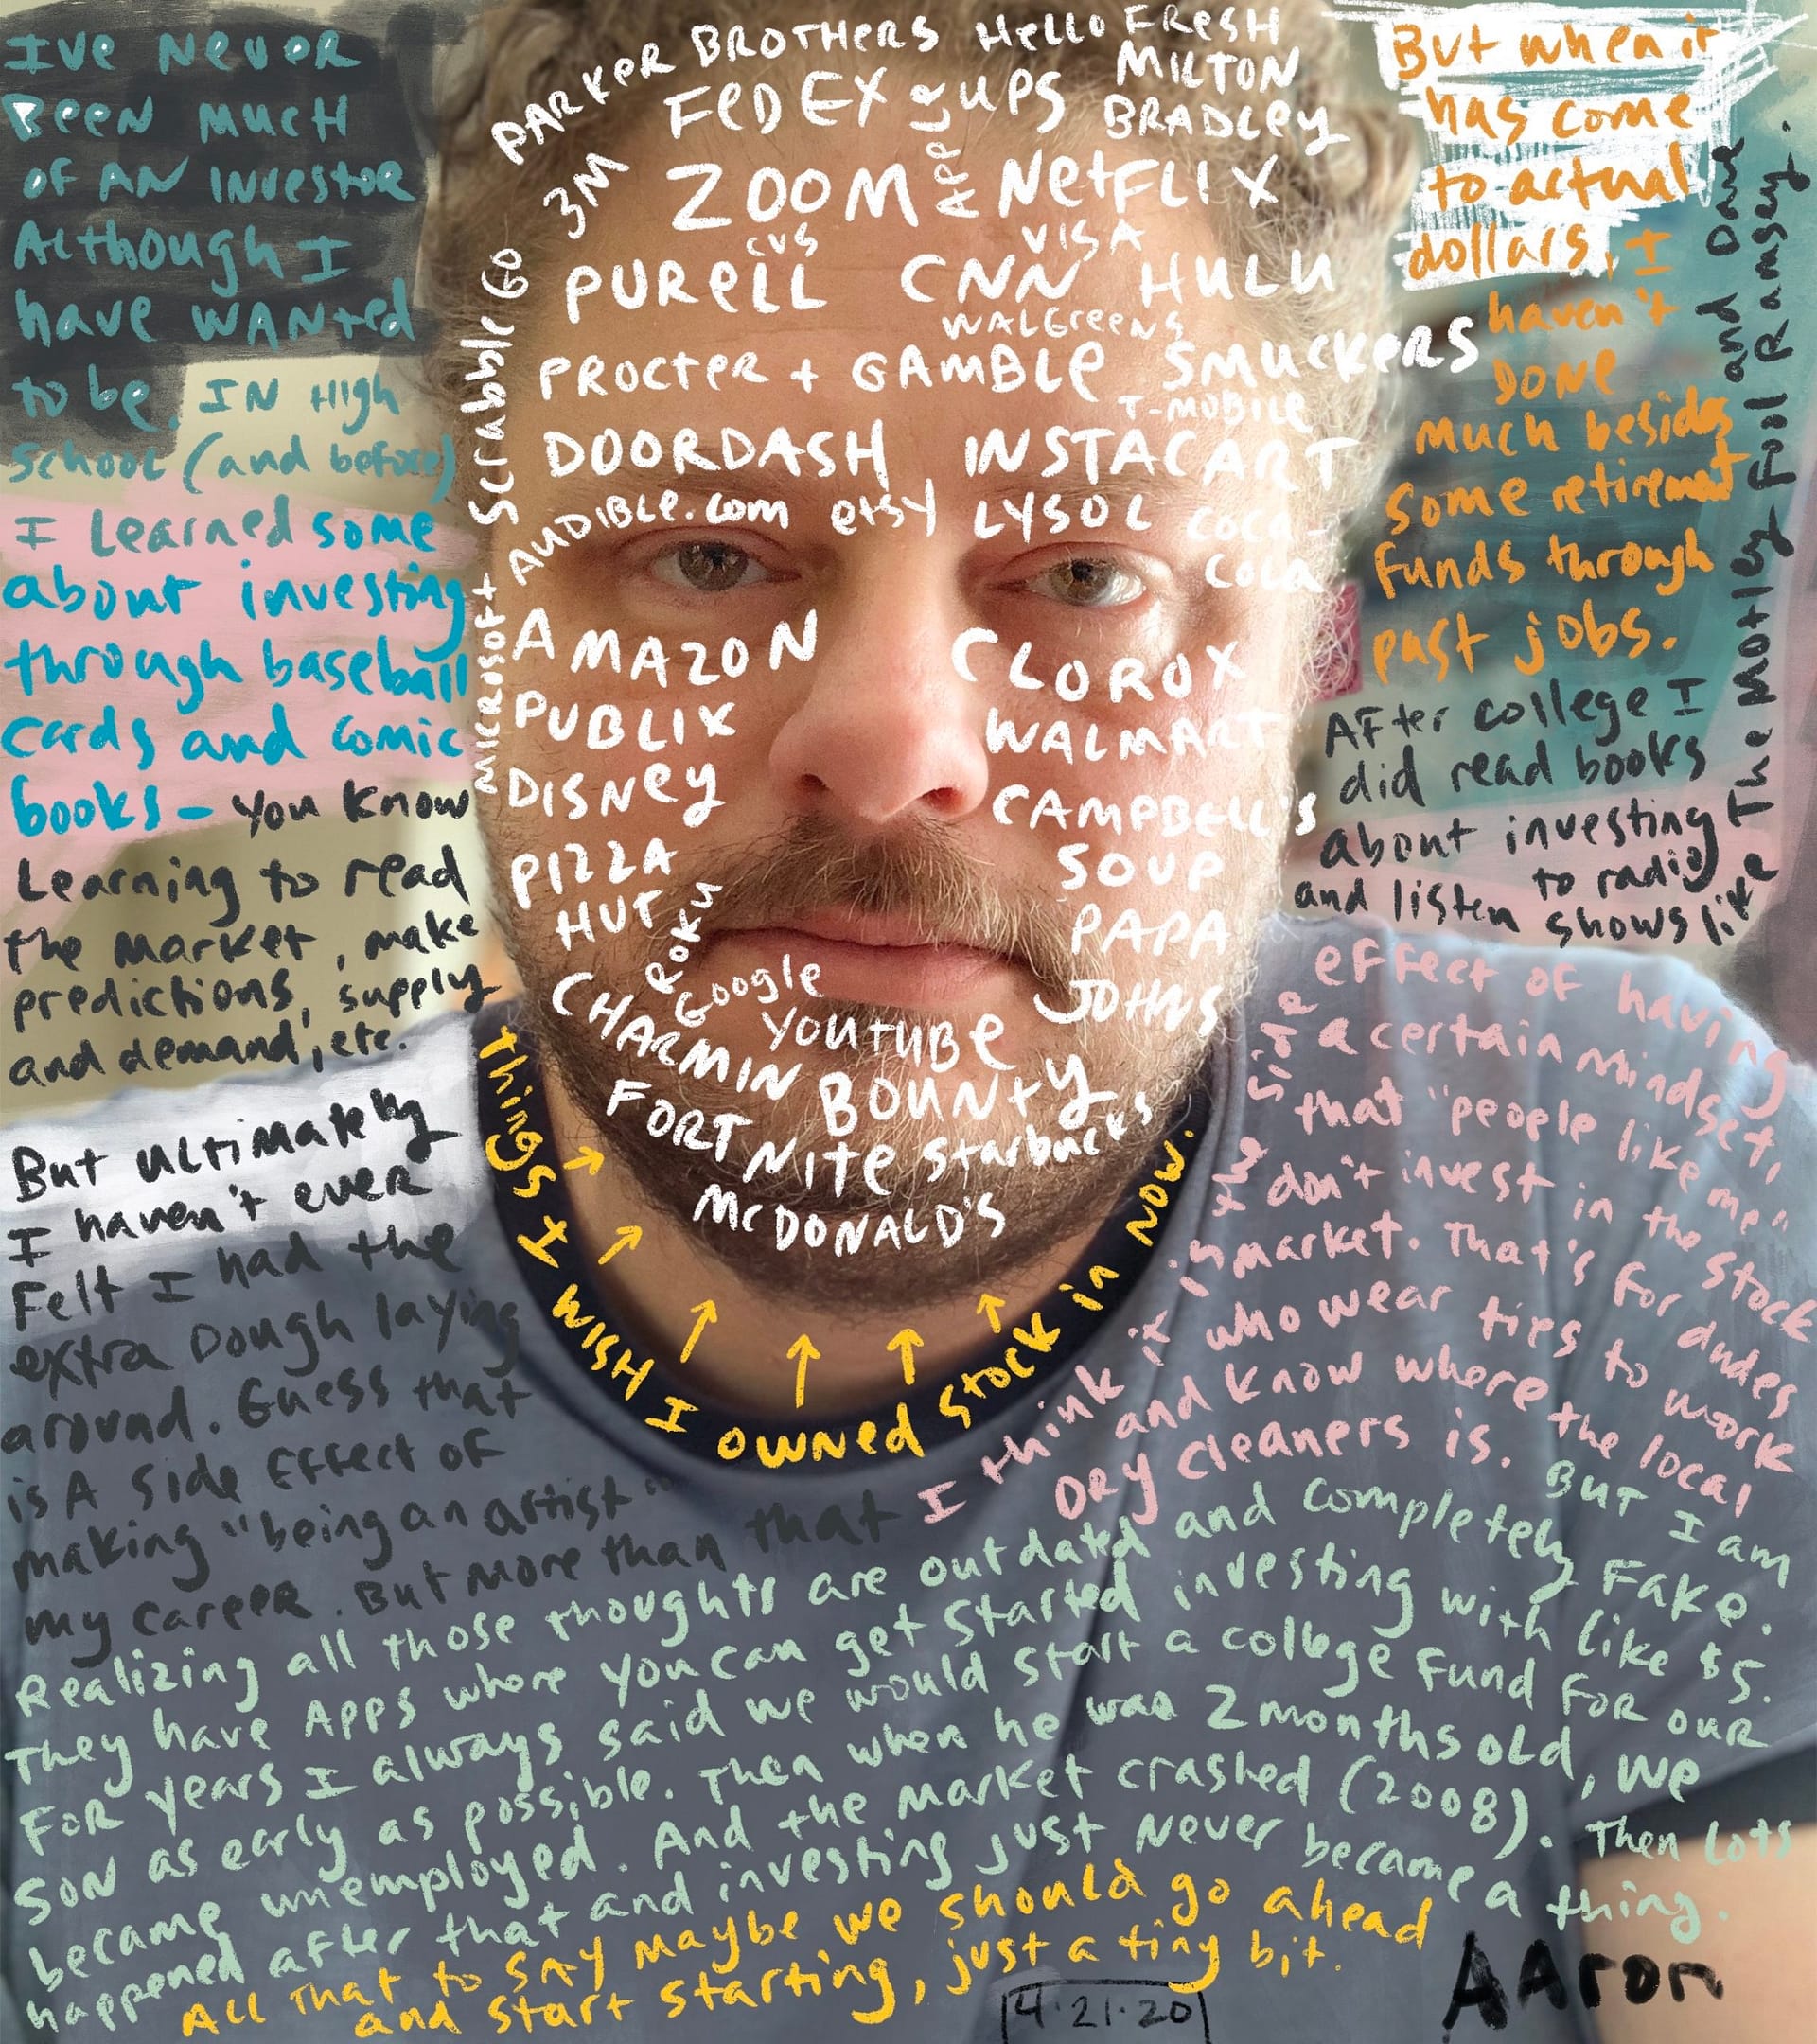 IVE NEVER
BEEN MUCH
OF AN INVESTOR
Although I
have WANted
to be. IN High
School (and before)
I learned some
about investing
through baseball
cards and comic
books - you know
Learning to read
the market, make
predictions, supply
and demand, etc.
But ultimately
I haven't ever
Felt I had the
extra Dough laying
around. Guess that
is A side effect of
making "being an artist"
my career. But more than that
I think it is the side effect of having
a certain mindset,
that "people like me"
don't invest in the stock
market. That's for dudes
who wear ties to work
and know where the local
DRY cleaners is. But I am
Realizing all those thoughts are outdated and completely Fake.
They have Apps where you can get started investing with like $5.
For years I always said we would start a college fund for our
son as early as possible. Then when he was 2 months old, we
became unemployed. And the market crashed (2008). Then lots
happened after that and investing just never became a thing.
All that to say maybe we should go ahead
and start starting, just a tiny bit.
4.21.20
AAron
But when it
has come
to actual
dollars, I
haven't
DONE
much besides
some retirement
funds through
past jobs.
AFter college I
did read books
about investing
and listen to radio
shows like The Motley Fool and Dave Ramsey.
PARKER BROTHERS Hello FResH
FeDEX APPLe UPS MILTON BRADLey
3M ZOOM NetFLIX
CVS VISA
PURELL CNN HULU
WALGreeNS
Scrabble Go
PROCTER + GAMBLe SMUCKERS
T-MOBILe
DOORDASH INSTACART
AUDIBLe.com etsy LYSOL COCA-COLA
MICROSOFt
AMAZON CLOROX
PUBLIX WALMART
DISNey CAMPBELL'S SOUP
PIZZA HUT PAPA JOHNS
ROKU
Google
YOUTUBe
CHARMIN BOUNTY
FORTNITe Starbucks
McDONALD'S
Things I WISH I OWNED Stock in NOW.